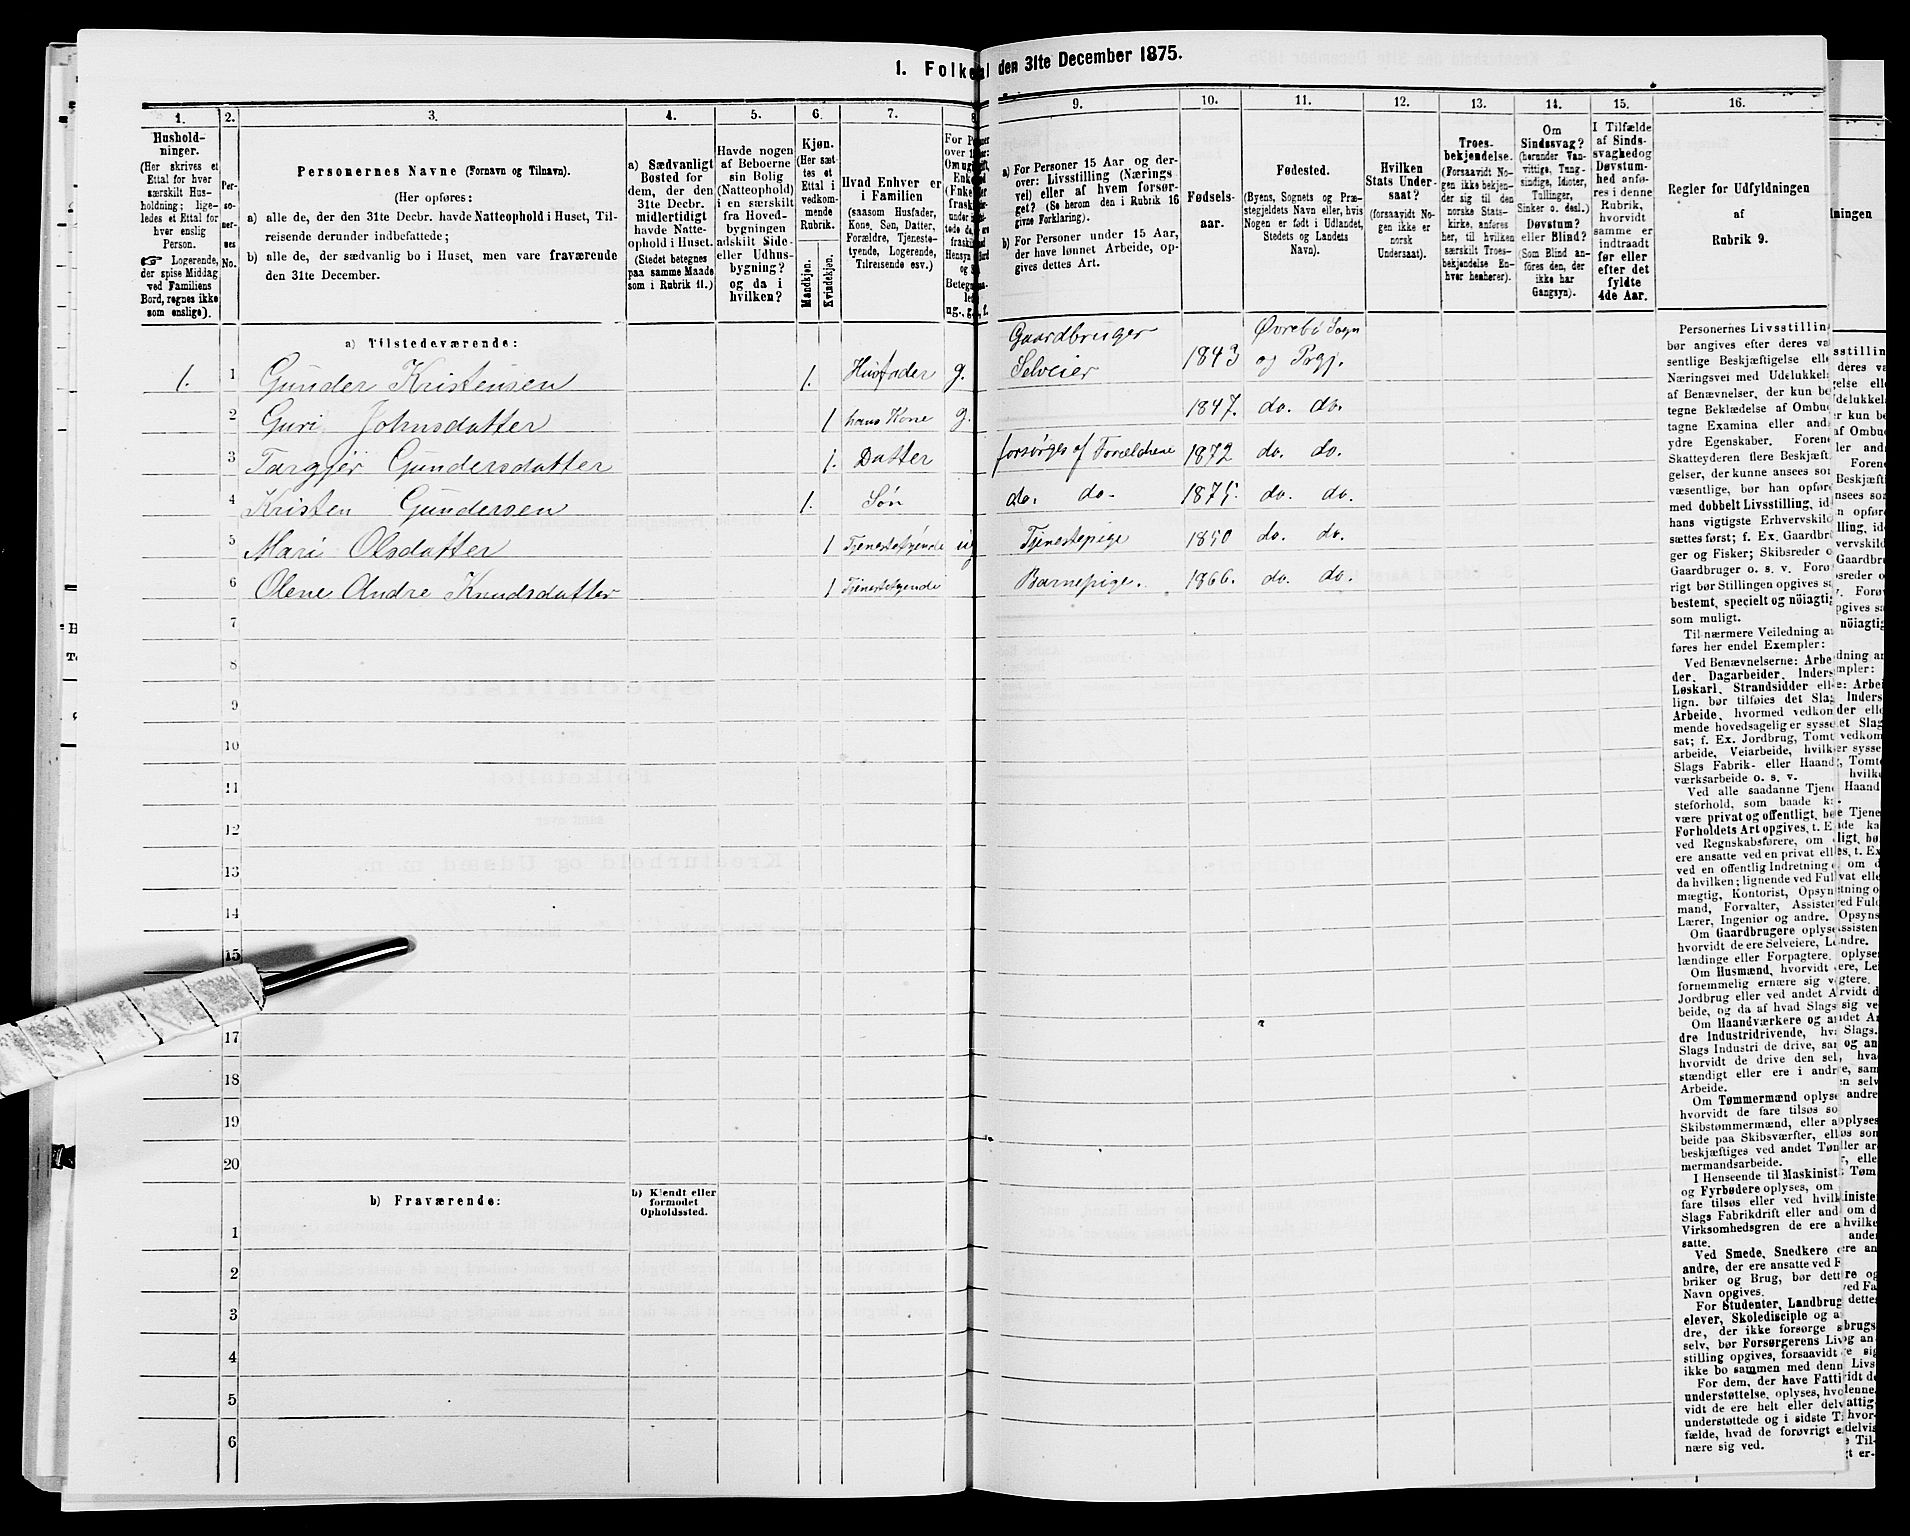 1. Folketal den 31te December 1875.
1. 2. 3. 4. 5. 6. 7. 8. 9. 10. 11. 12. 13. 14. 15. 16.
Hushold-
ninger.
(Her skrives et
Ettal for hver
særskilt Hus-
holdning; lige-
ledes et Ettal for
hver enslig
Person.
☞ Logerende,
der spise Middag
ved Familiens
Bord, regnes ikke
som enslige).
Per-
so-
ner-
nes
No.
Personernes Navne (Fornavn og Tilnavn).
(Her opføres:
a) alle de, der den 31te Decbr. havde Natteophold i Huset, Til-
reisende derunder indbefattede;
b) alle de, der sædvanlig bo i Huset, men vare fraværende
den 31te December.
a) Sædvanligt
Bosted for
dem, der den
31te Decbr.
midlertidigt
havde Natte-
ophold i Huset.
(Stedet betegnes
paa samme Maade
som i Rubrik 11.)
Havde nogen
af Beboerne
sin Bolig
(Natteophold)
i en særskilt
fra Hoved-
bygningen
adskilt Side-
eller Udhus-
bygning?
og da i
hvilken?
Kjøn.
(Her sæt-
tes et
Ettal i
vedkom-
mende
Rubrik.
Mandkjøn.
Kvindekjøn.
Hvad Enhver er
i Familien
(saasom Husfader,
Kone, Søn, Datter,
Forældre, Tjeneste-
tyende, Logerende,
Tilreisende osv.)
a) For Personer 15 Aar og der-
over: Livsstilling (Nærings
vei) eller af hvem forsør-
get? (Se herom den i Rubrik 16
givne Forklaring).
b) For Personer under 15 Aar,
der have lønnet Arbeide, op-
gives dettes Art.
Fødsels-
aar.
Fødested.
(Byens, Sognets og Præ-
stegjeldets Navn eller, hvis
Nogen er født i Udlandet,
Stedets og Landets
Navn).
Hvilken
Stats Under-
saat?
(forsaavidt No-
gen ikke er
norsk
Undersaat).
Troes-
bekjendelse.
(Forsaavidt No-
gen ikke bekjen-
der sig til den
norske Stats-
kirke, anføres
her, til hvilken
særskilt Troes-
bekjendelse En-
hver henhører).
Om
Sindssvag?
(herunder Van-
vittige, Tung-
sindige, Idioter,
Tullinger,
Sinker o. desl.)
Døvstum?
eller Blind?
(Som Blind an-
føres den, der
ikke har
Gangsyn).
I Tilfælde
af Sinds-
svaghed og
Døvstum-
hed anfø-
res i denne
Rubrik,
hvorvidt
samme er
indtraadt
før eller
efter det
fyldte
4de Aar.
Regler for Udfyldningen
af
Rubrik 9.
a) Tilstedeværende:
1. 1 Gunder Kristensen 1. Husfader g. Gaardbruger Selveier 1843 Øvrebø Sogn og Prgj.
2 Guri Johnsdatter 1 hans Kone g. 1847. do. do.
3 Targjer Gundersdatter 1. Datter forsørges af Forældrene 1872 do. do.
4 Kristen Gundersen 1. Søn do. do. 1875. do. do.
5 Mari Olsdatter 1 Tjenestetyende ug Tjenestepige 1850 do. do.
6 Olene Andre Knudsdatter 1 Tjenestetyende Barnepige. 1866. do. do.
7
8
9
10
11
12
13
14
15
17
18
19
20
b) Fraværende:
b) Kjendt eller
formodet
Opholdssted.
1
2
3
4
5
6
Personernes Livsstilling
bør angives efter deres
sentlige Beskjæftigelse
Næringsvei med Udelukkelse
af Benævnelser, der kun
tegne Beklædelse af
tagne Examina eller
ydre Egenskaber.
Skatteyderen flere
gelser, der kunne ansees som
væsentlige, bør han
med dobbelt Livsstilling,
hans vigtigste
sættes først; f. Ex.
ger og Fisker; Skibsreder
Gaardbruger o. s. v.
rigt bør Stillingen opgives
bestemt, specielt og nöiagtig
som muligt.
Til nærmere Veiledning
føres her endel Exempler:
Ved Benævnelserne:
der, Dagarbeider,
Løskarl, Strandsidder
lign. bør tilføies det
Arbeide, hvormed
mende hovedsagelig er
sat; f. Ex. Jordbrug,
arbeide, Veiarbeide,
Slags Fabrik- eller
værksarbeide o. s. v.
Ved alle saadanne
steforhold, som baade
være privat og offentligt, bør
Forholdets Art opgives, t. Ex.
ved Regnskabsførere, om
ere ansatte ved en privat
ved en offentlig Indretning
da hvilken; lignende ved
mægtig, Kontorist,
mand, Forvalter,
Lærer, Ingeniør og andre.
Om Gaardbrugere
hvorvidt de ere Selveiere,
lændinge eller Forpagtere.
Om Husmænd, hvorvidt
fornemmelig ernære sig
Jordbrug eller ved andet
beide, og da af hvad Slags.
Om Haandværkere og
dre Industridrivende,
Slags Industri de drive,
hvorvidt de drive den
stændigt eller ere i
Arbeide.
Om Tømmermænd
hvorvidt de fare tilsøs
Skibstømmermænd, eller
beide paa Skibsværfter,
beskjæftiges ved andet
mermandsarbeide.
I Henseende til
og Fyrbødere oplyses, om
fare tilsøs eller ved
Slags Fabrikdrift eller
Virksomhedsgren de ere
satte.
Ved Smede, Snedkere
andre, der ere ansatte ved
briker og Brug, bør
Navn opgives.
For Studenter,
elever, Skoledisciple og
dre, der ikke forsørge
selv, bør Forsørgerens
stilling opgives, forsaavidt
ikke bo sammen med
For dem, der have
understøttelse, oplyses,
vidt de ere helt eller
understøttede og i sidste
fælde, hvad de forøvrigt
nære sig ved.